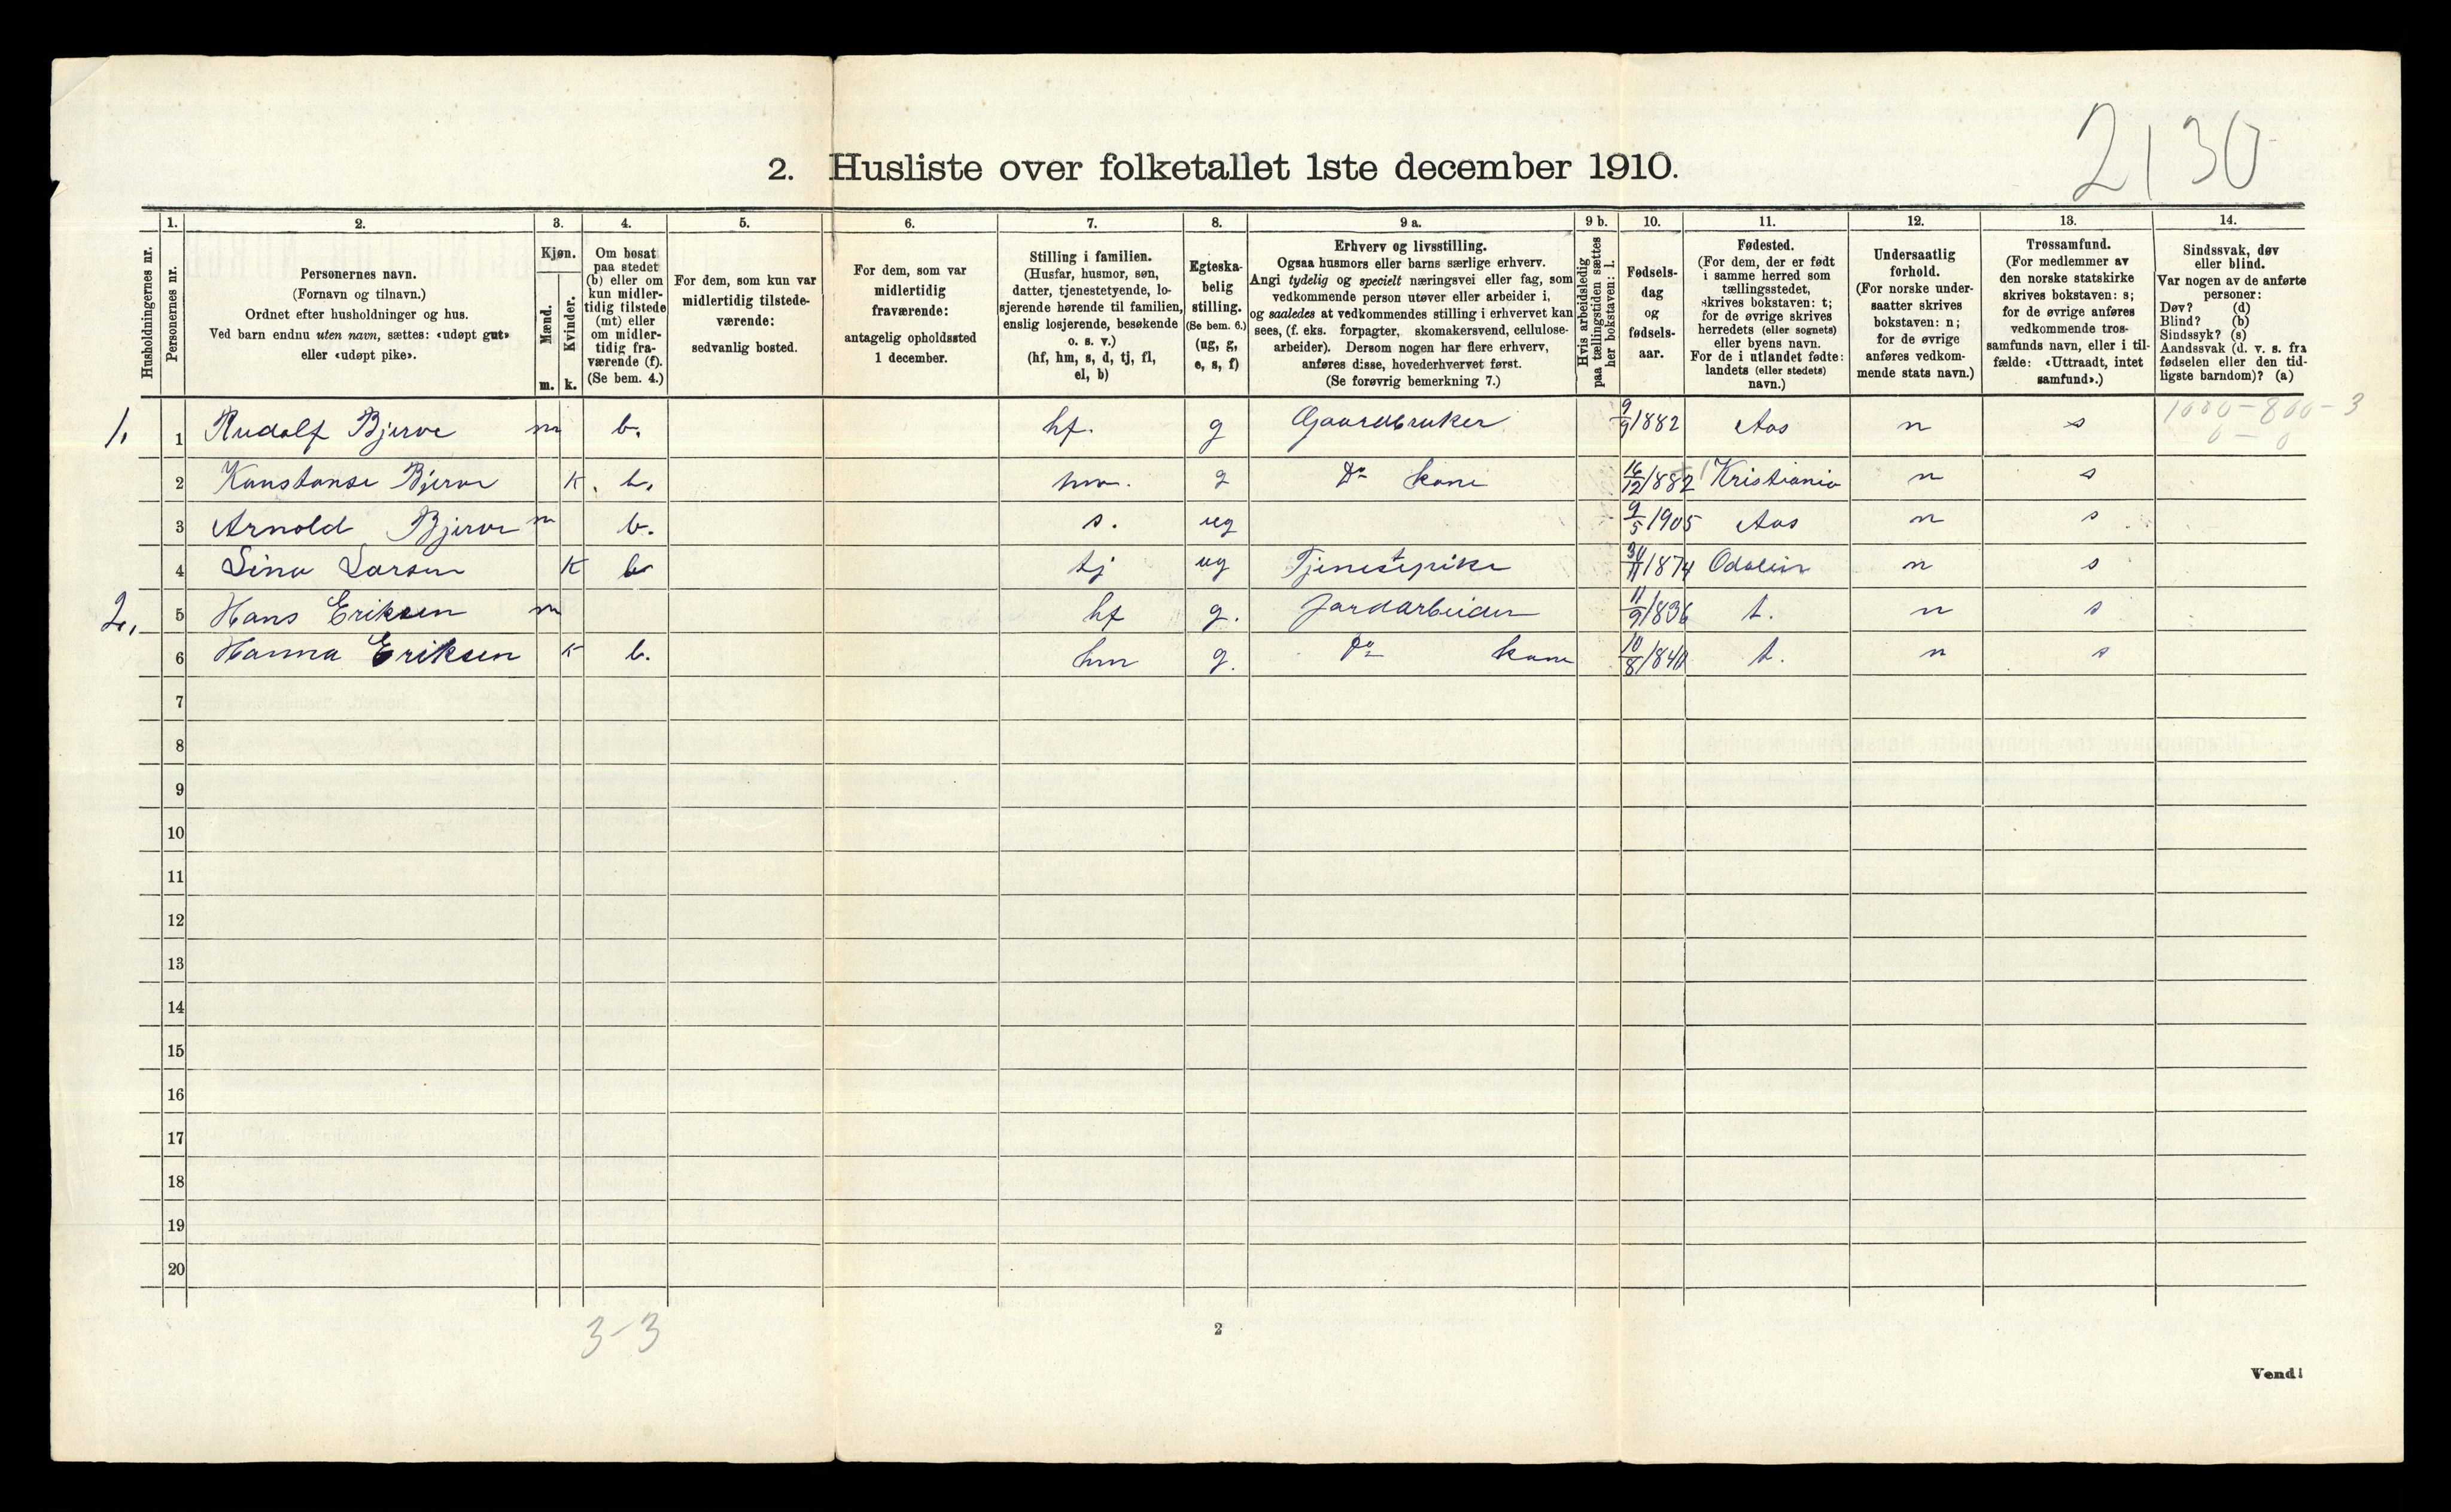 2130
2. Husliste over folketallet 1ste december 1910.
Husholdningernes nr.
1.
Personernes nr.
2.
Personernes navn.
(Fornavn og tilnavn.)
Ordnet efter husholdninger og hus.
Ved barn endnu uten navn, sættes: «udøpt gut»
eller «udøpt pike».
3.
Kjøn.
Mænd.
m.
Kvinder.
k.
4.
Om bosat
paa stedet
(b) eller om
kun midler-
tidig tilstede
(mt) eller
om midler-
tidig fra-
værende (f).
(Se bem. 4.)
5.
For dem, som kun var
midlertidig tilstede-
værende:
sedvanlig bosted.
6.
For dem, som var
midlertidig
fraværende:
antagelig opholdssted
1 december.
7.
Stilling i familien.
(Husfar, husmor, søn,
datter, tjenestetyende, lo-
sjerende hørende til familien,
enslig losjerende, besøkende
o. s. v.)
(hf, hm, s, d, tj, fl,
el, b)
8.
Egteska-
belig
stilling.
(Se bem. 6.)
(ug, g,
e, s, f)
9 a.
Erhverv og livsstilling.
Ogsaa husmors eller barns særlige erhverv.
Angi tydelig og specielt næringsvei eller fag, som
vedkommende person utøver eller arbeider i,
og saaledes at vedkommendes stilling i erhvervet kan
sees, (f. eks. forpagter, skomakersvend, cellulose-
arbeider). Dersom nogen har flere erhverv,
anføres disse, hovederhvervet først.
(Se forøvrig bemerkning 7.)
9 b.
Hvis arbeidsledig
paa tællingstiden sættes
her bokstaven: l.
10.
Fødsels-
dag
og
fødsels-
aar.
11.
Fødested.
(For dem, der er født
i samme herred som
tællingsstedet,
skrives bokstaven: t;
for de øvrige skrives
herredets (eller sognets)
eller byens navn.
For de i utlandet fødte:
landets (eller stedets)
navn.)
12.
Undersaatlig
forhold.
(For norske under-
saatter skrives
bokstaven: n;
for de øvrige
anføres vedkom-
mende stats navn.)
13.
Trossamfund.
(For medlemmer av
den norske statskirke
skrives bokstaven: s;
for de øvrige anføres
vedkommende tros-
samfunds navn, eller i til-
fælde: «Uttraadt, intet
samfund».)
14.
Sindssvak, døv
eller blind.
Var nogen av de anførte
personer:
Døv? (d)
Blind? (b)
Sindssyk? (s)
Aandssvak (d. v. s. fra
fødselen eller den tid-
ligste barndom)? (a)
1000 – 800 – 3
0 – 0
1. 1 Rudolf Bjerve m b. hf. g Gaardbruker 9/9 1882 Aas n s
2 Konstanse Bjerve K. b. hm. g Do kone 16/12 1882 Kristiania n s
3 Arnold Bjerve m b. s. ug 9/5 1905 Aas n s
4 Lina Larsen K b tj ug Tjenestepike /11 1874 Odalen n s
2. 5 Hans Eriksen m hf g. Jordarbeider 11/9 1836 t. n s
6 Hanna Eriksen K b. hm g. Do kone 10/8 t. n s
7
8
9
10
11
12
13
14
15
16
17
18
19
20
3-3
2
Vend!